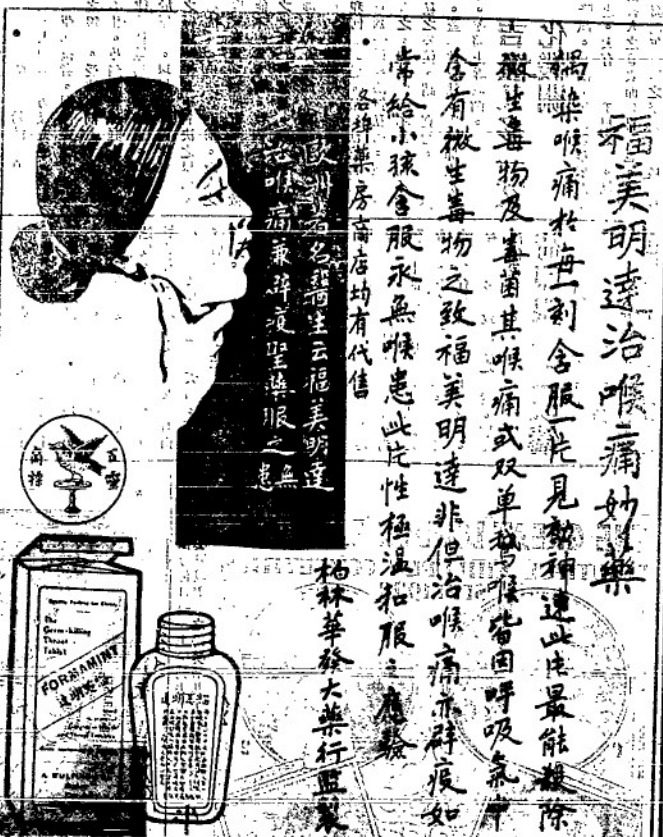 福美明達治喉痛妙藥
染喉痛於每一刻含服一片見效神速此片最能殺除
微生毒物及毒菌其喉痛或双单鵝喉皆因呼吸氣中
含有微生毒物之致福美明達非但治喉痛亦辟疫如
常給小孩含服永無喉患此片性極溫和服之應驗
各埠藥房商店均有代售
歐洲著名醫生云福美明達
治喉痛兼辟疫聖藥服之無患
柏林華發大藥行監製
商標
The
Germ-killing
Throat
Tablet
FORMAMINT
福美明達